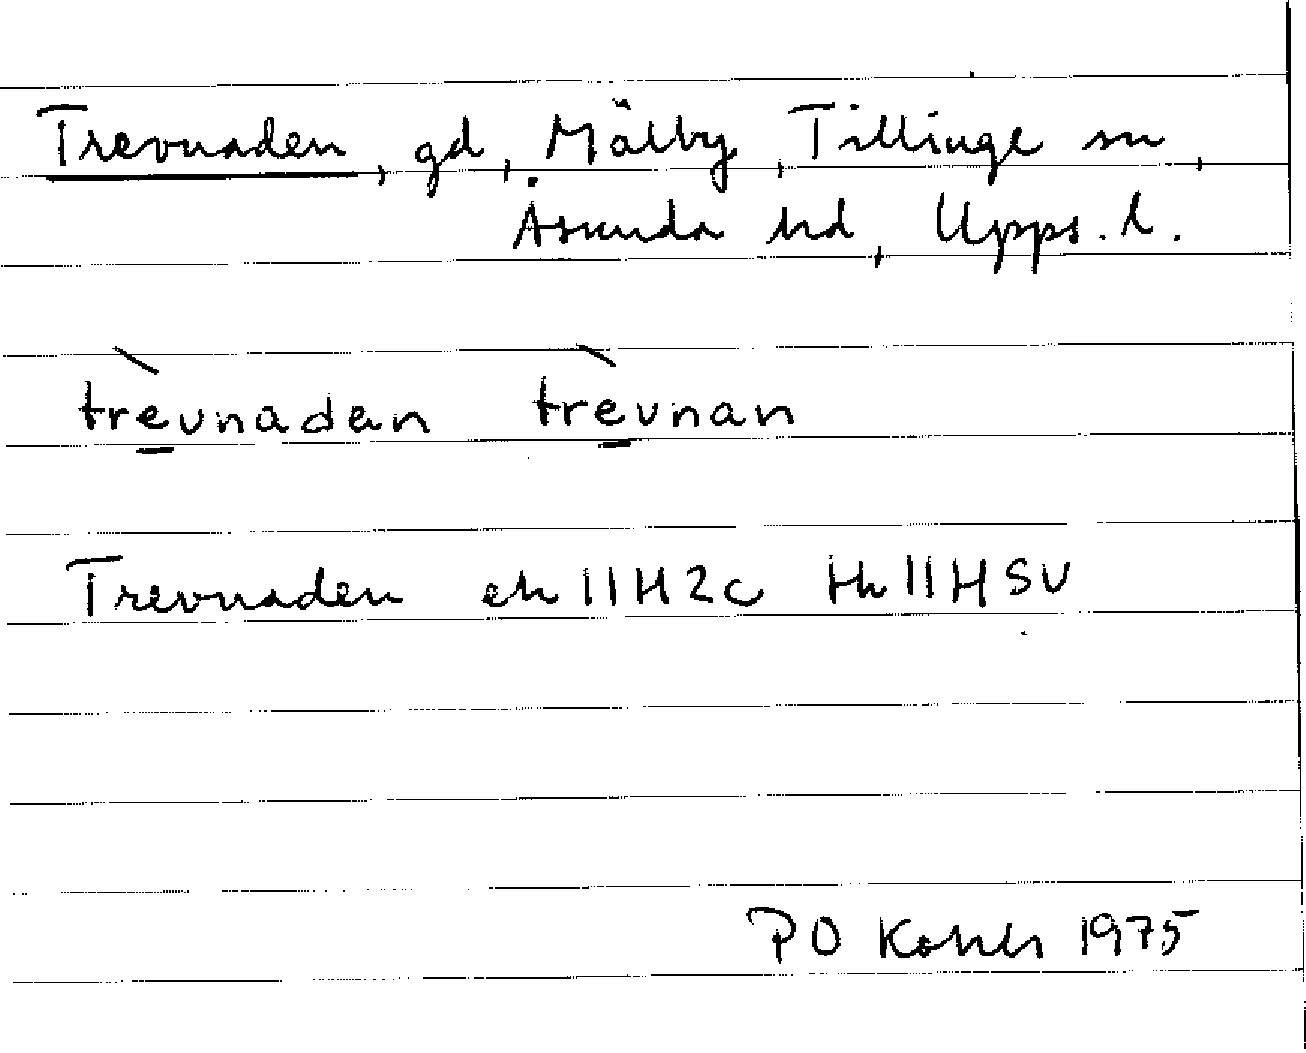 Trevnaden, gd, Mälby, Tillinge sn,
Åsunda hd, Upps. l.
trè̲vnadan trè̲vnan
Trevnaden ek 11H2c Hk 11H SV
P O 1975